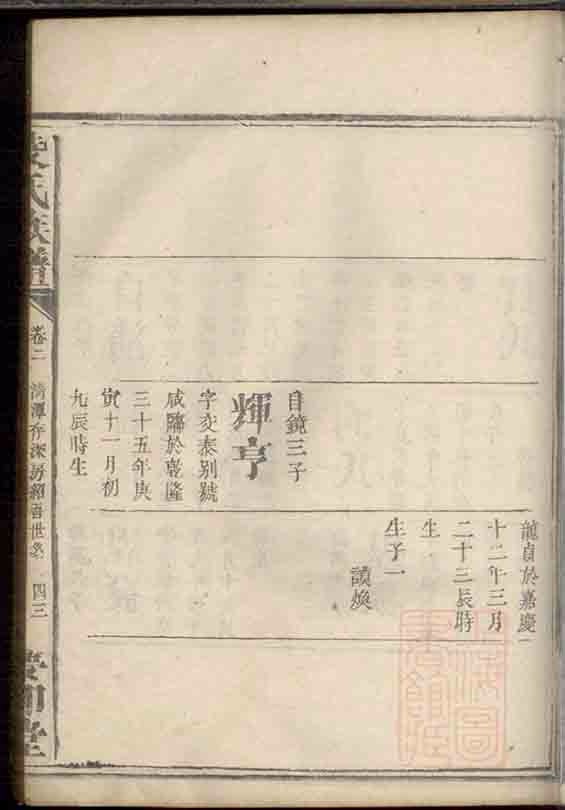 龍貞於嘉慶
十二年三月
二十三辰時
生
生子一
讀煥
目鏡三子
輝亨
字交泰别號
咸臨於乾隆
三十五年庚
寅十一月初
九辰時生
氏族譜
卷二
清潭存深房紹吾世系
四三
堂